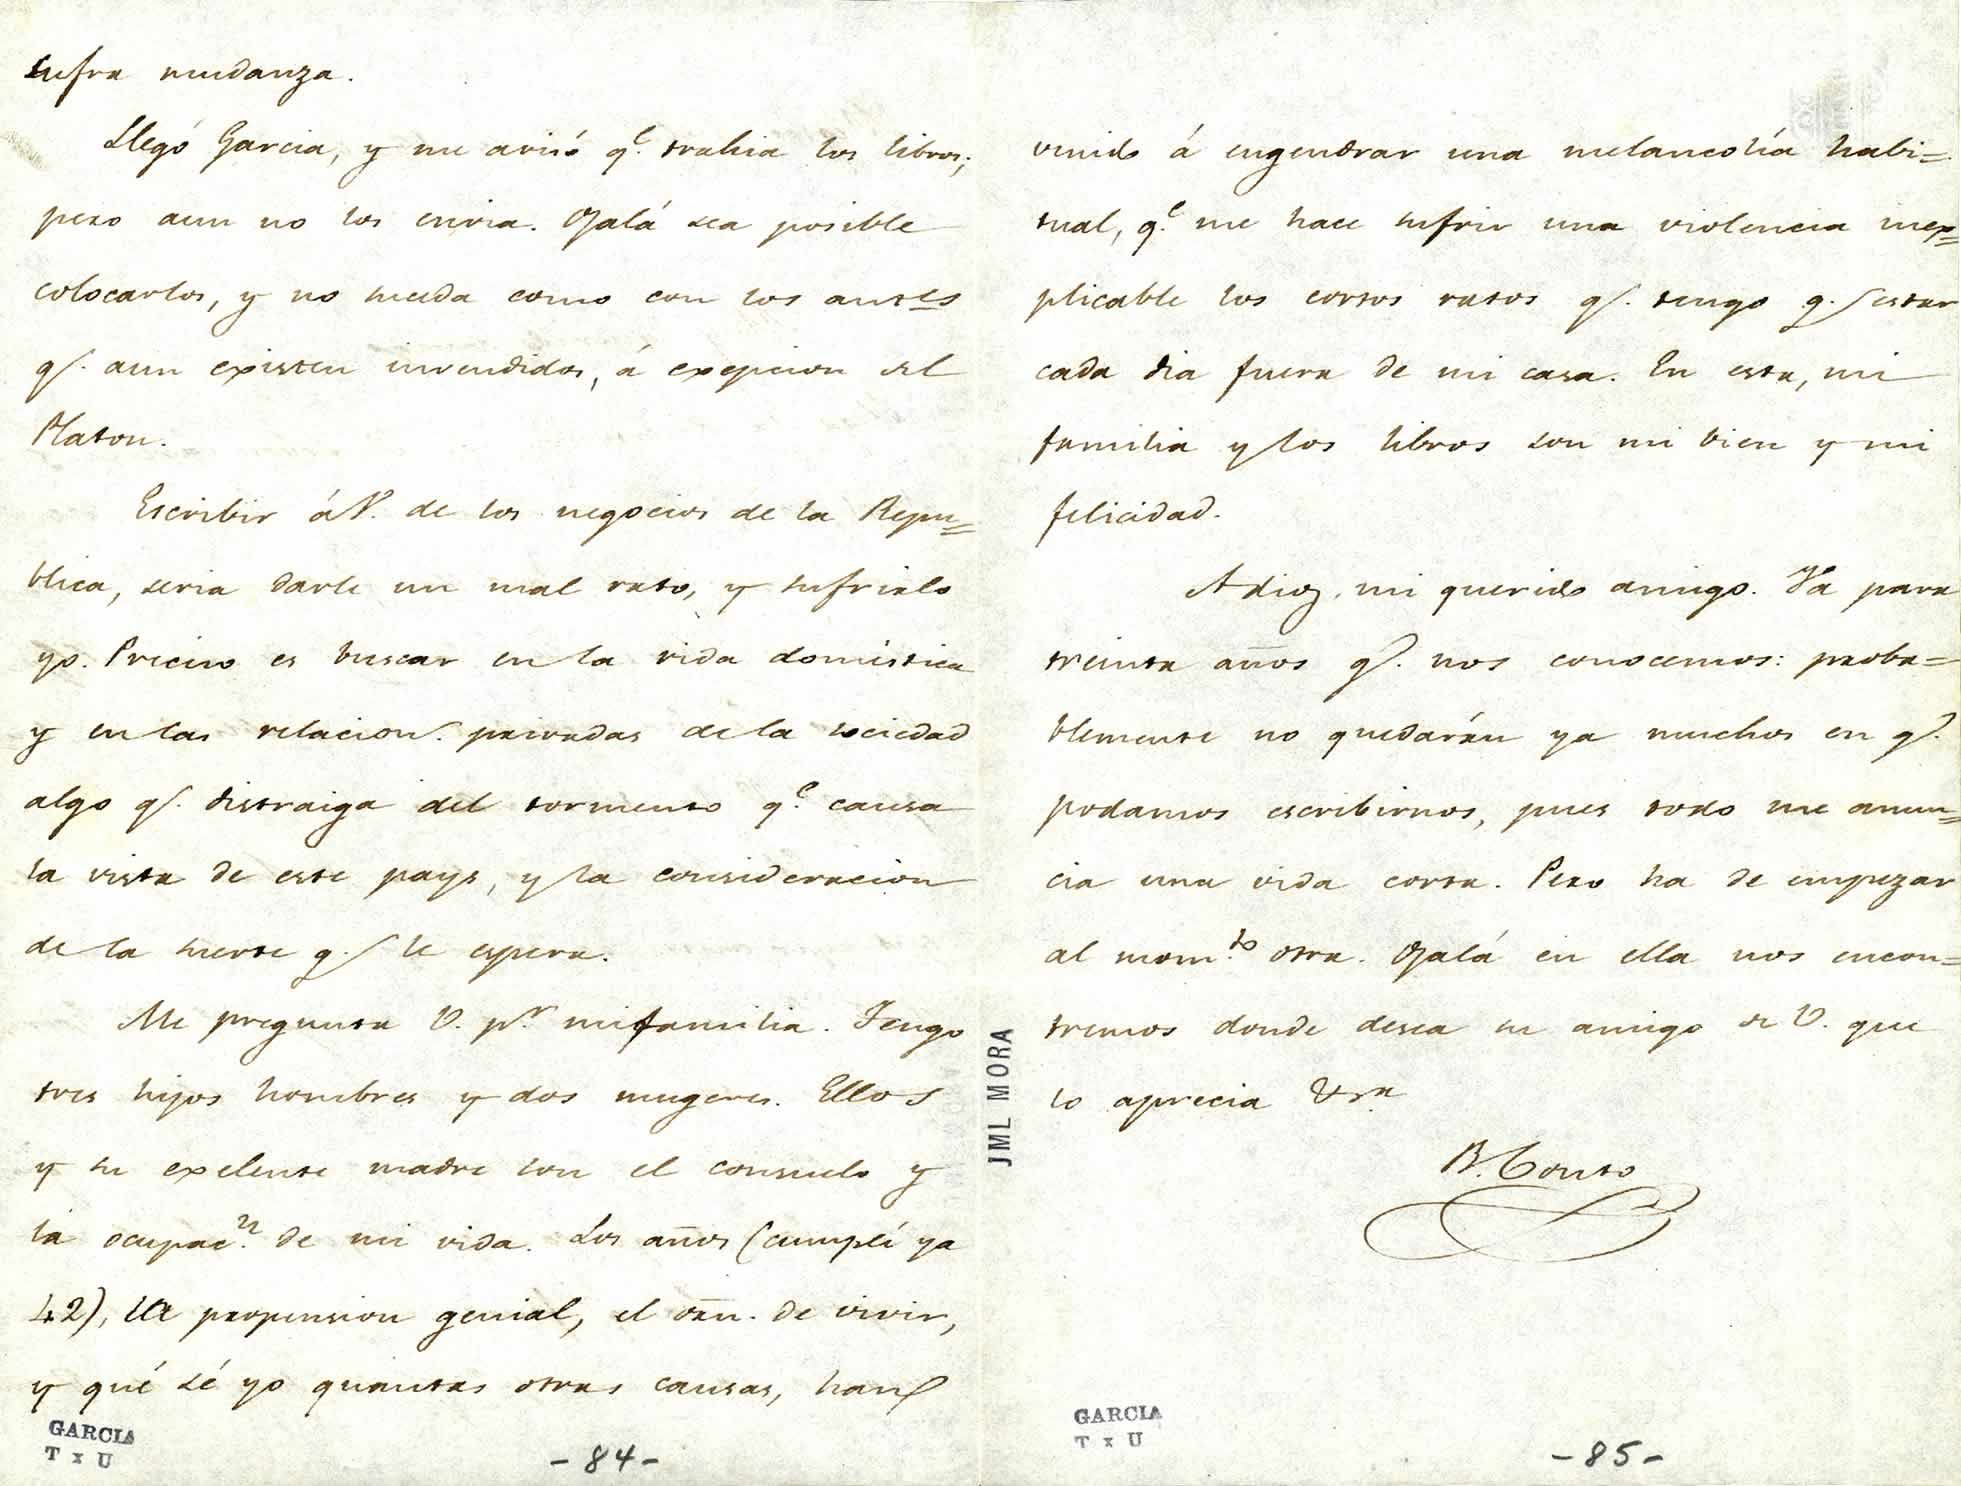 sufra mudanza.
Llegó Garcia, y me avisó q.e trahia los libros;
pero aun no los envia. Ojalá sea posible
colocarlos, y no suceda como con los antes
q.e aun existen invendidos, á exepcion del
Platon.
Escribir á V. de los negocios de la Repu=
blica, seria darle un mal rato, y sufrirlo
yo. Preciso es buscar en la vida doméstica
y en las relacion.s privadas de la sociedad
algo q.e distraiga del tormento q.e causa
la vista de este pays, y la consideracion
de la suerte q.e le espera.
Me pregunta V. p.r mi familia. Tengo
tres hijos hombres y dos mugeres. Ellos
y su exelente madre son el consuelo y
la ocupac.n de mi vida. Los años (cumplí ya
42), la propension genial, el órn. de vivir,
y qué sé yo quantas otras causas, han
GARCIA
T x U
-84-
JML MORA
venido á engendrar una melancolía habi=
tual, q.e me hace sufrir una violencia inex=
plicable los cortos ratos q.e tengo q.e estar
cada dia fuera de mi casa. En esta, mi
familia y los libros son mi bien y mi
felicidad.
Adios, mi querido amigo. Va para
treinta años q.e nos conocemos: proba=
blemente no quedarán ya muchos en q.e
podamos escribirnos, pues todo me anun=
cia una vida corta. Pero ha de empezar
al mom.to otra. Ojalá en ella nos encon=
tremos donde desea su amigo de V. que
lo aprecia
B. Couto
GARCIA
T x U
-85-